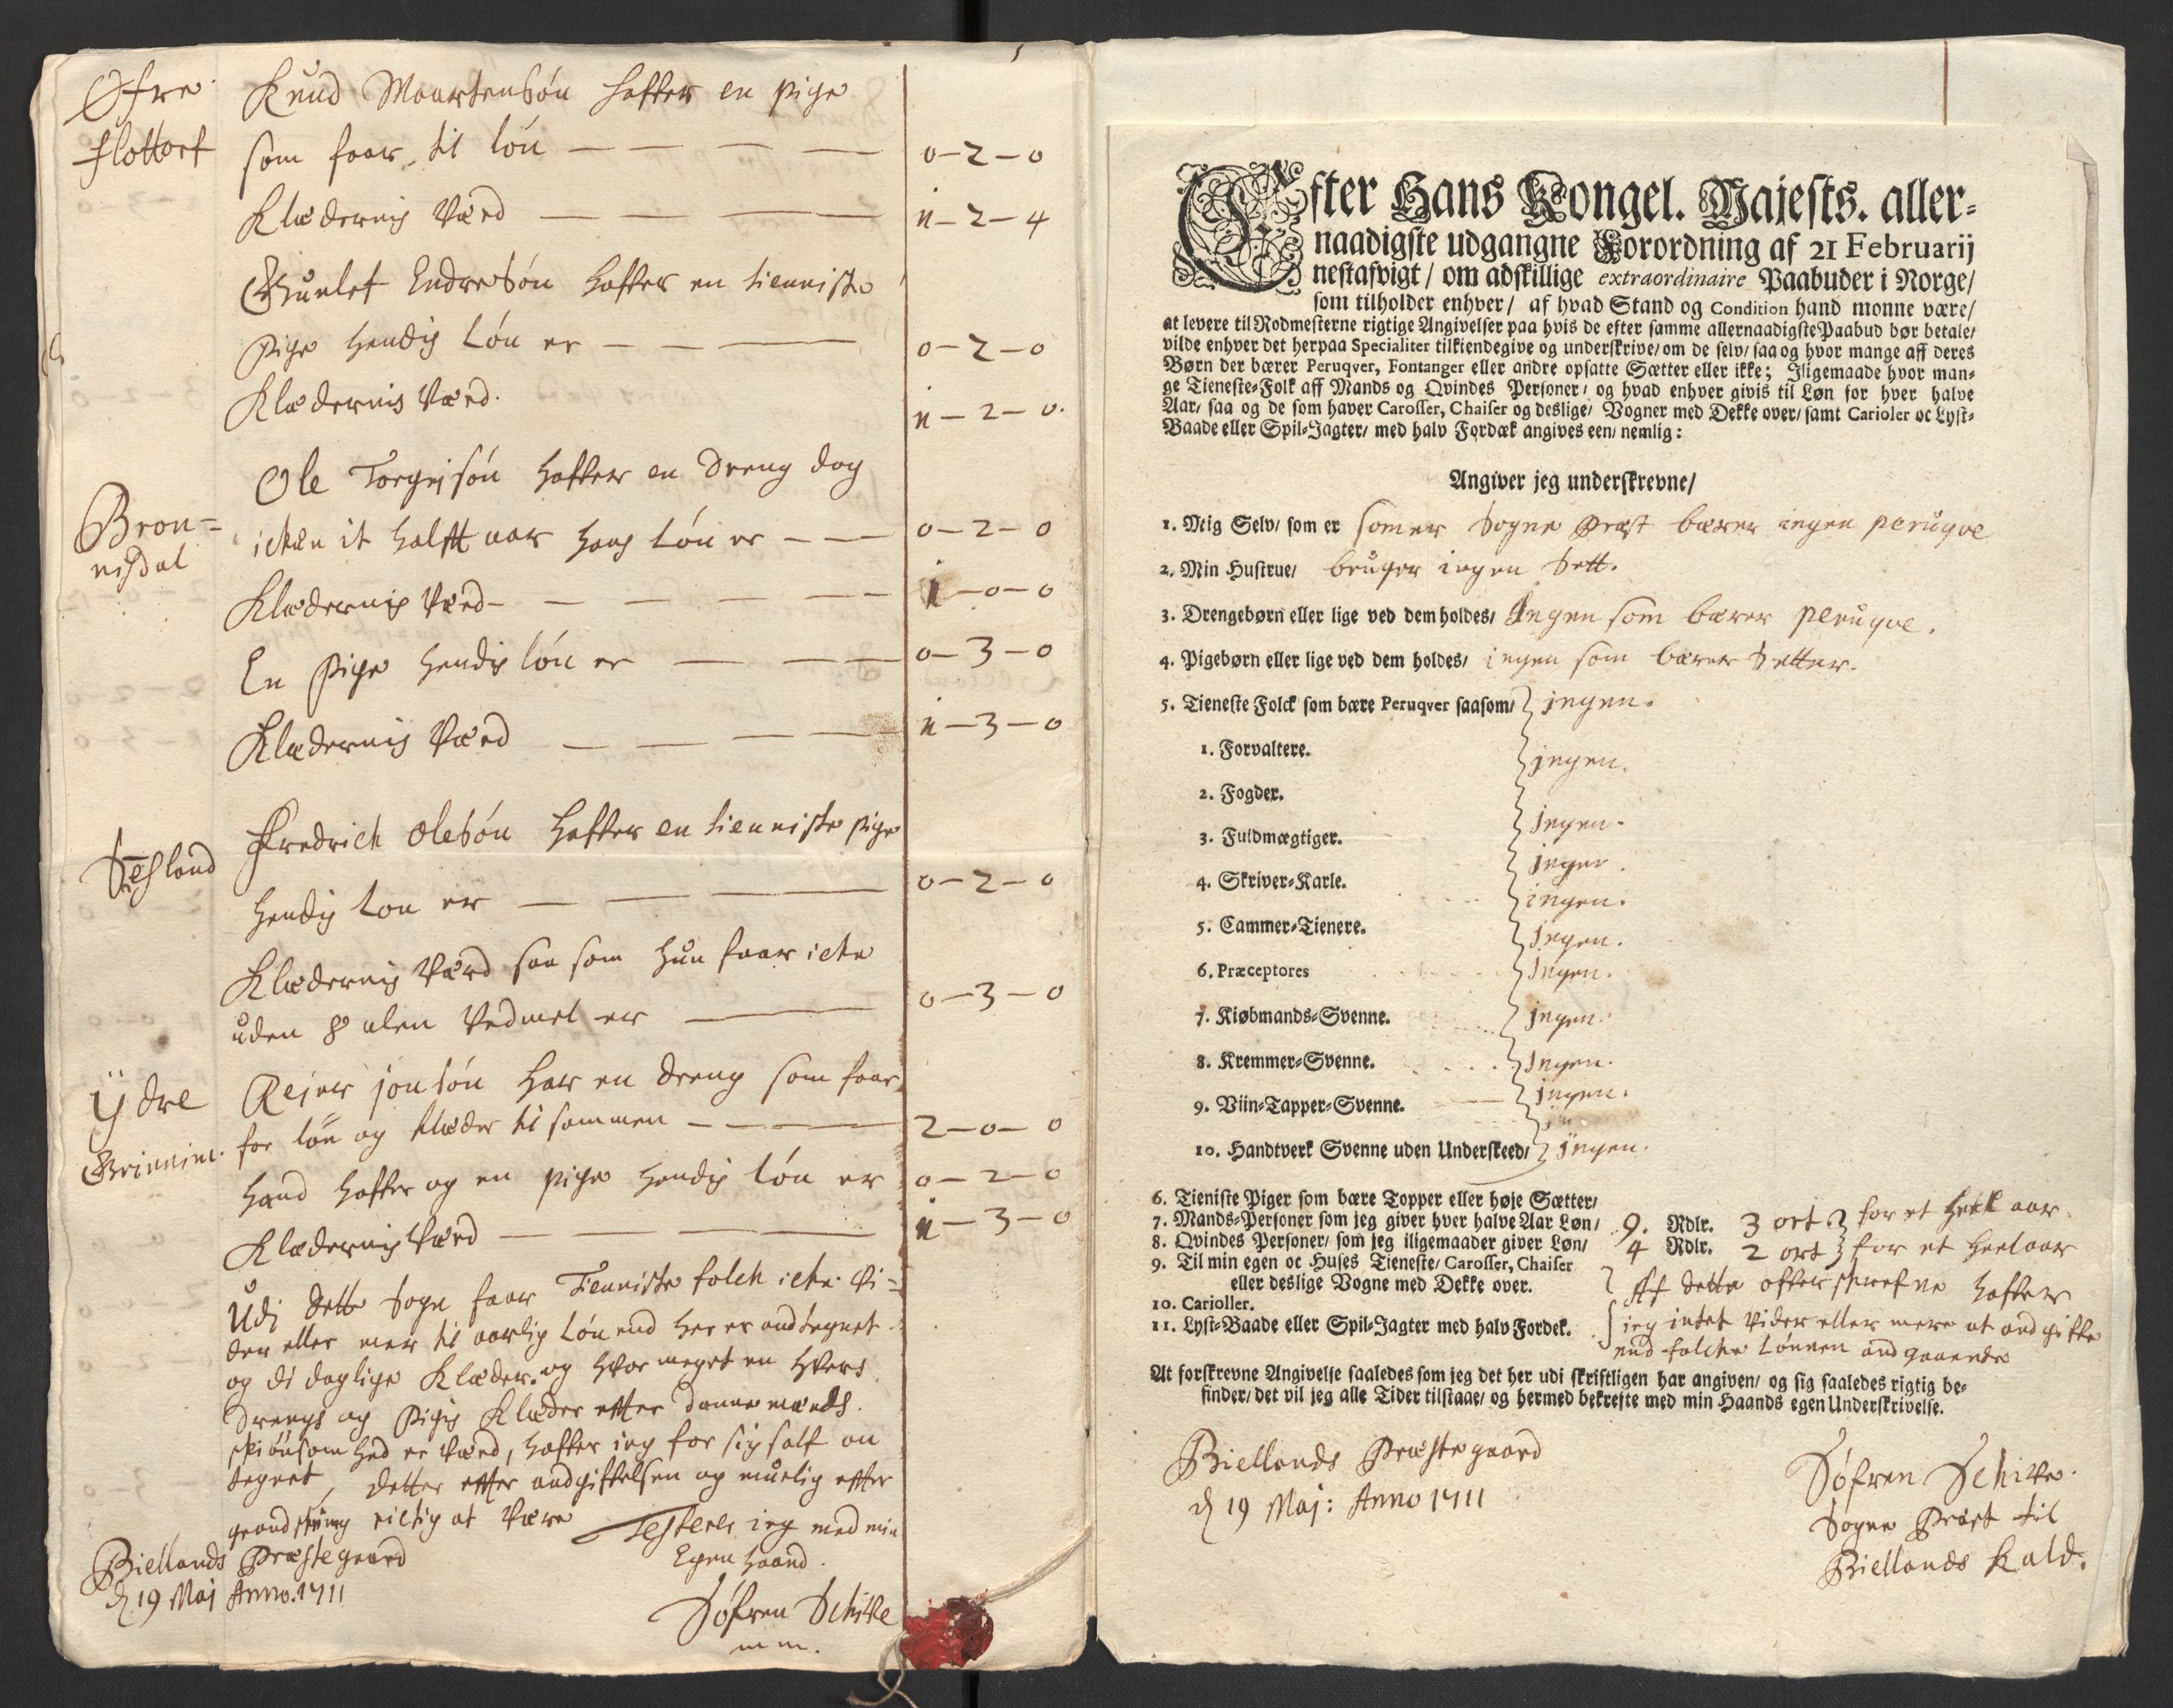 Øfre Knud Maartensøn hafter en pige
flottorf som faar til løn — — — — 0–2–0
Klædernis Værd — — — — n–2–4
Gunlef Endresøn hafter en tienniste
pige hendis løn er — — — 0–2–0
Klædernis Værd. n–2–0.
Ole Torgisøn hafter en dreng dog
Bron= icken it halft aar hans løn er — — 0–2–0
nisdal
Klædernis Værd — — — — — 1–0–0
En pige hendis løn er — — — 0–3–0
Klædernis Værd — — — — n–3–0
Fredrich Olesøn hafter en tienniste pige
hendis løn er — — — 0–2–0
Klædernis Værd saa som hun faar icke
uden 8 alen Vadmel er — 0–3–0
Ÿdre Rejer jonsøn har en dreng som faar
for løn og klæder til sammen — — — 2–0–0
Grinnim. hand hafter og en pige hendis løn er 0–2–0
Klædernis Værd — — — — n–3–0
Udi dette sogn faar Tienniste folck icke vi=
der eller mer til aarlig løn end her er andtegnet
og di daglige Klæder. og hvor meget en hvers
drengs og pigis Klæder efter danne mænds
skiønsom hed er Værd, hafter ieg for sig self an
tegnet, detter efter andgiffelsen og muelig efter
grandskning rictig at Være Testerer ieg med min
Egen haand.
Biellands Præstegaard
d 19 Maj Anno. 1711
Søfren Schive
m m.
Efter Hans Kongel. Majests. aller=
naadigste udgangne Forordning af 21 Februarij
nestafvigt / om adskillige extraordinaire Paabuder i Norge/
som tilholder enhver / af hvad Stand og Condition hand monne være/
at levere til Rodmesterne rigtige Angivelser paa hvis de efter samme allernaadigste Paabud bør betale/
vilde enhver det herpaa Specialiter tilkiendegive og underskrive/ om de selv/ saa og hvor mange aff deres
Børn der bærer Peruqver, Fontanger eller andre opsatte Sætter eller ikke; Iligemaade hvor man=
ge Tieneste=Folk aff Mands og Qvindes Personer / og hvad enhver givis til Løn for hver halve
Aar/ saa og de som haver Carosser, Chaiser og deslige/ Vogner med Dekke over/ samt Carioler oc Lyst=
Baade eller Spil=Jagter/ med halv Fordæk angives een/ nemlig:
Angiver jeg underskrevne/
1. Mig Selv/ som er som er Sogne Præst bærer ingen peruqve
2. Min Hustrue/ bruger ingen Sett.
3. Drengebørn eller lige ved dem holdes/ Ingen som bærer peruqve.
4. Pigebørn eller lige ved dem holdes/ ingen som bærer Setter.
5. Tieneste Folck som bære Peruqver saasom/ } jngen.
1. Forvaltere. } jngen.
2. Fogder. } jngen.
3. Fuldmægtiger. } jngen.
4. Skriver=Karle. } ingen.
5. Cammer=Tienere. } Jngen.
6. Præceptores } Ingen.
7. Kiøbmands=Svenne. } jngen.
8. Kremmer=Svenne. } Ingen.
9. Viin=Tapper=Svenne. } jngen.
10. Handtverk Svenne uden Underskeed/ } jngen.
6. Tieniste Piger som bære Topper eller høje Sætter/
7. Mands=Personer som jeg giver hver halve Aar Løn/ 9. Rdlr. 3 ort } for et heelt aar.
8. Qvindes Personer/ som jeg iligemaader giver Løn/ 4 Rdlr. 2 ort } for et heel aar
9. Til min egen oc Huses Tieneste/ Carosser, Chaiser
eller deslige Vogne med Dekke over. } Af dette ofter skrefne hafter
10. Carioller.
11. Lyst=Baade eller Spil=Jagter med halv Fordek. ieg intet vider eller mere at andgifte
end folche Lønnen andgaaende
At forskrevne Angivelse saaledes som jeg det her udi skriftligen har angiven/ og sig saaledes rigtig be=
finder/ det vil jeg alle Tider tilstaae/ og hermed bekrefte med min Haands egen Underskrivelse.
Biellands Præstegaard
d 19 Maj: Anno 1711
Søfren Schive.
Sogne Præst til
Biellands Kald.